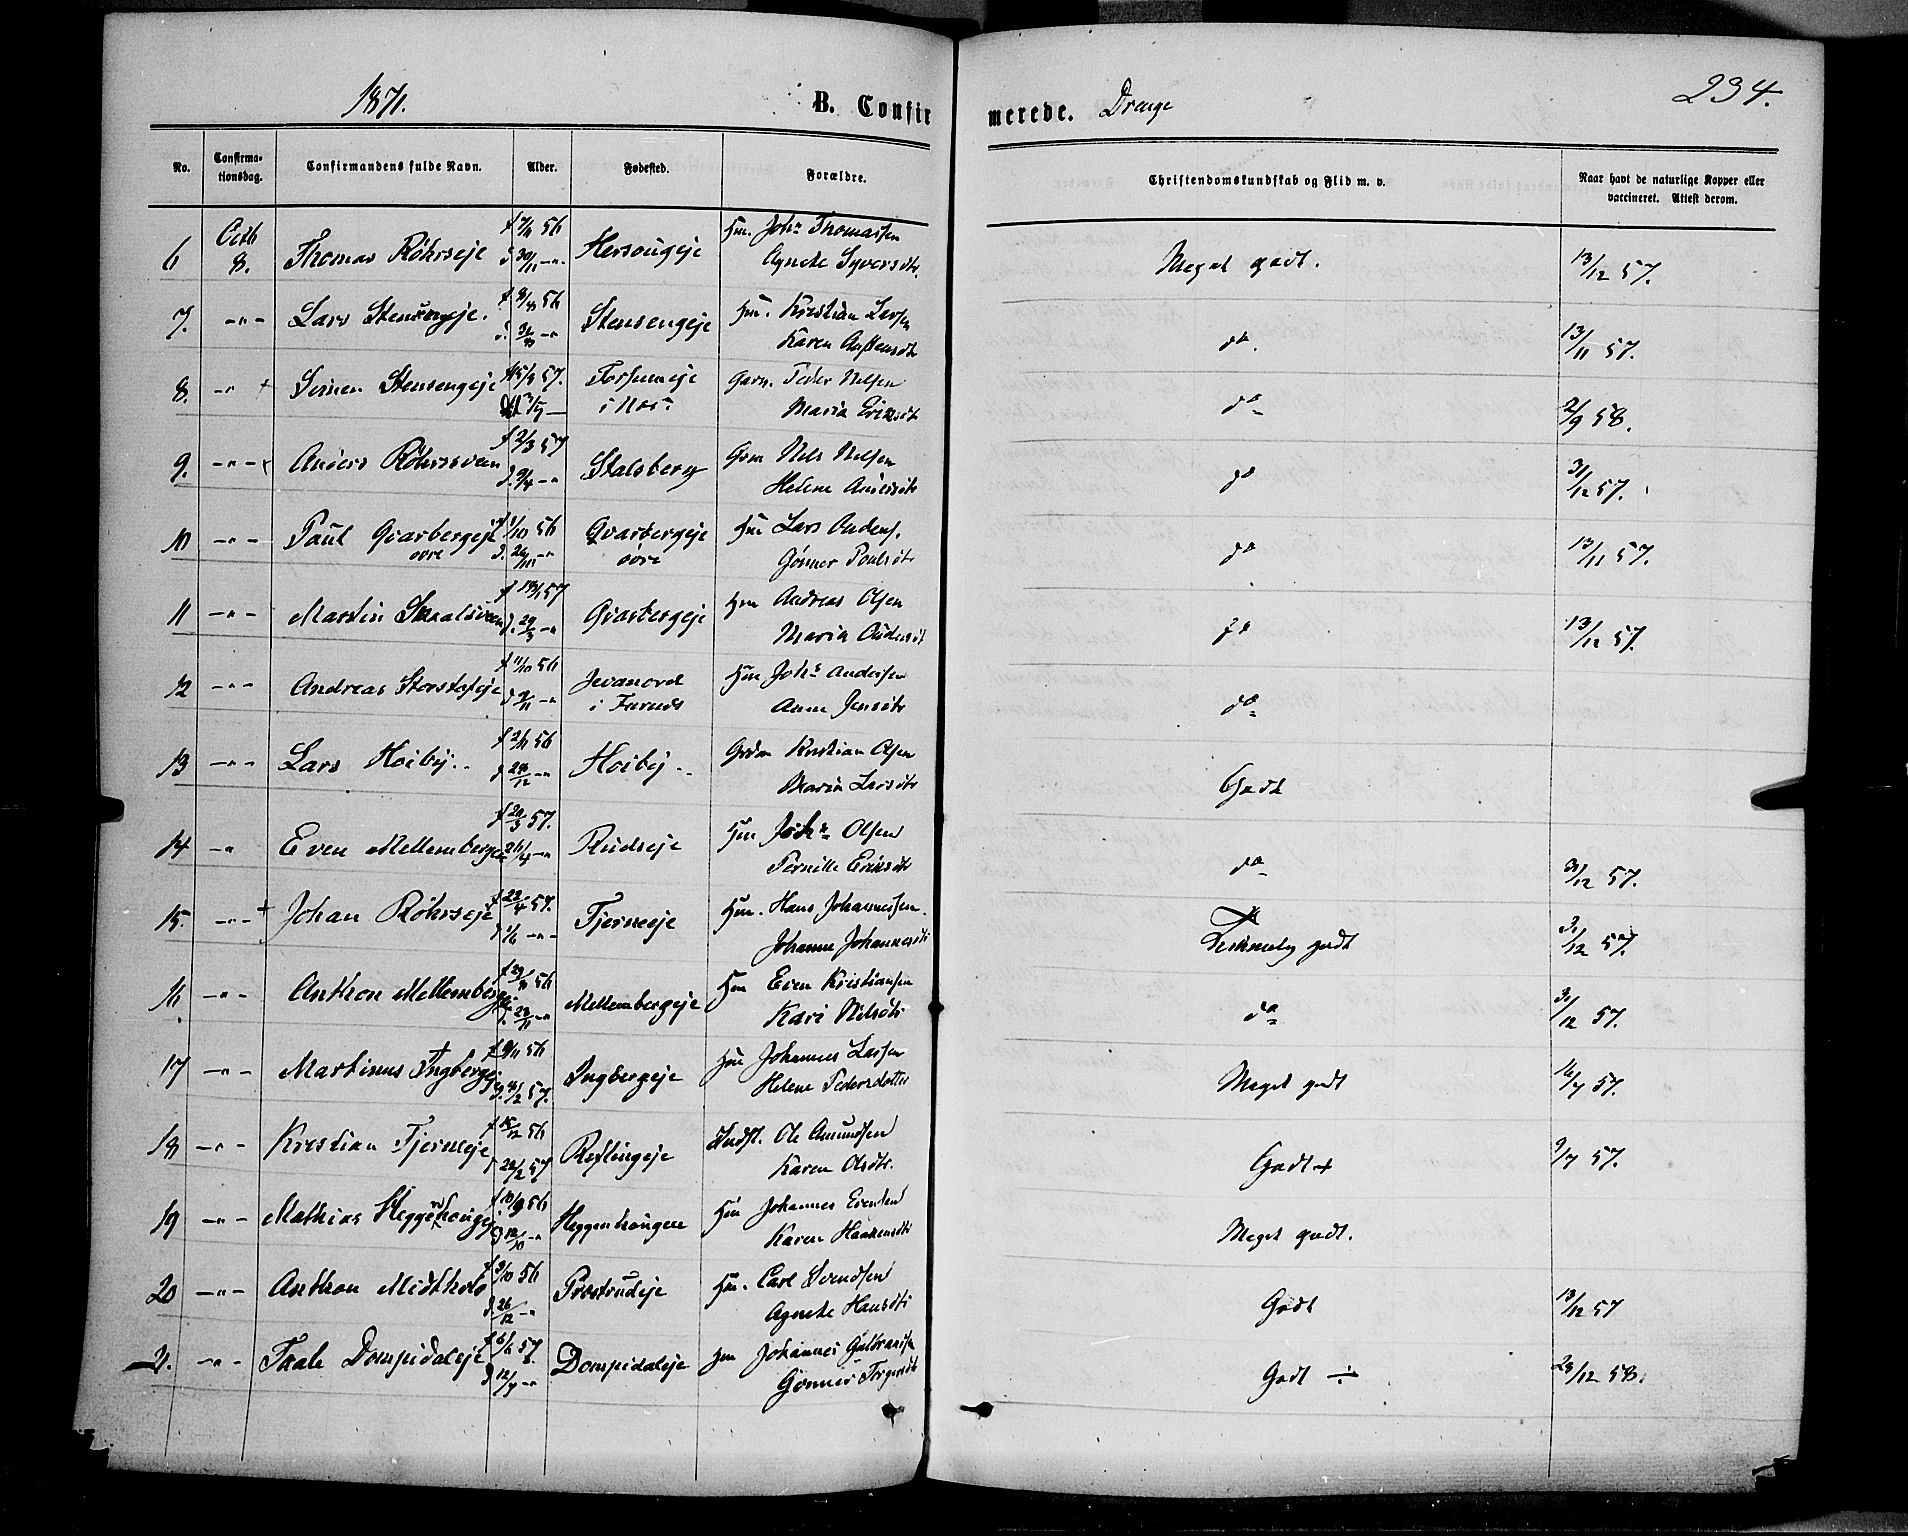 1871.
B. Confirmerede. Drenge
234.
No. Confirmationsdag. Confirmandens fulde Navn. Alder. Fødested. Forældre. Christendomskundskab og Flid m. v. Naar havt de naturlige Kopper eller vaccineret. Attest derom.
6 Octb 8. Thomas Röhrseje 56 Hersougeje Hm. Joh. Thomassen
Agnete Syversdtr. Meget godt. 13/12 57.
7. -"- Lars Stensengeje. 56 Stensengeje Hm. Kristian Larsen
Karen do. 13/11 57.
8. -"- + Simen Stensengeje 57. i Næs Peder Nilsen
Maria Eriksdtr do 2/9 58.
9. -"- Anders Röhrsveen 2/3 57 Stalsberg Nils Nilsen
Helene Andersdtr do 31/12 57.
10 -"- Paul Qvarbergeje øvre 1/10 56 Qvarbergeje øvre Hm Lars
Gönner Poulsdtr do 13/11 57.
11 -"- Martin 57 Qvarbergeje Hm Andreas Olsen
Maria do 13/12 57.
12 -"- Andreas 11/10 56 i Furnæs Hm Joh. Andersen
Anne Jensdtr do
13 -"- Lars Hoibij 56 Hoibij Kristian Olsen
Maria Larsdtr Godt
14 -" Even Mellemberg 20/3 57. Rudseje Hm Joh. Olsen
Pernille Eriksdtr do 31/12 57.
15. -"- + Johan Röhrseje 22/4 57. Tjerneeje Hm. Hans Johannessen.
Johanne Johannesdtr Temmelig godt 31/12 57.
16. -"- Anthon Mellemberg 56 Mellembergeje Hm Even Kristiansen
Kari Nilsdtr do 31/12 57.
17 -"- Martinus Ingbergeje 9/11 56 57. Ingbergeje Hm Johannes Larsen
Helene Pedersdatter Meget godt 57.
18 -"- Kristian Tjerneeje 15/12 56 22/2 57 Reflingeje Indst. Ole Amundsen
Karen Olsdtr. Godt + 9/7 57.
19 -"- Mathias Heggenhougen 56 12/10 -" Heggenhaugen Hm Johannes Evensen
Karen Haakensdtr Meget godt.
20 -"- Anthon Midtholo 56 26/12 -" Prestrudeje Hm. Carl Svendsen
Agnete Hansdtr Godt 13/12 57
21. -"- Taale Dompidaleje 57. Dompidaleje Hm Johannes Gulbrandsen
Gönner Godt ÷ 28/12 58.